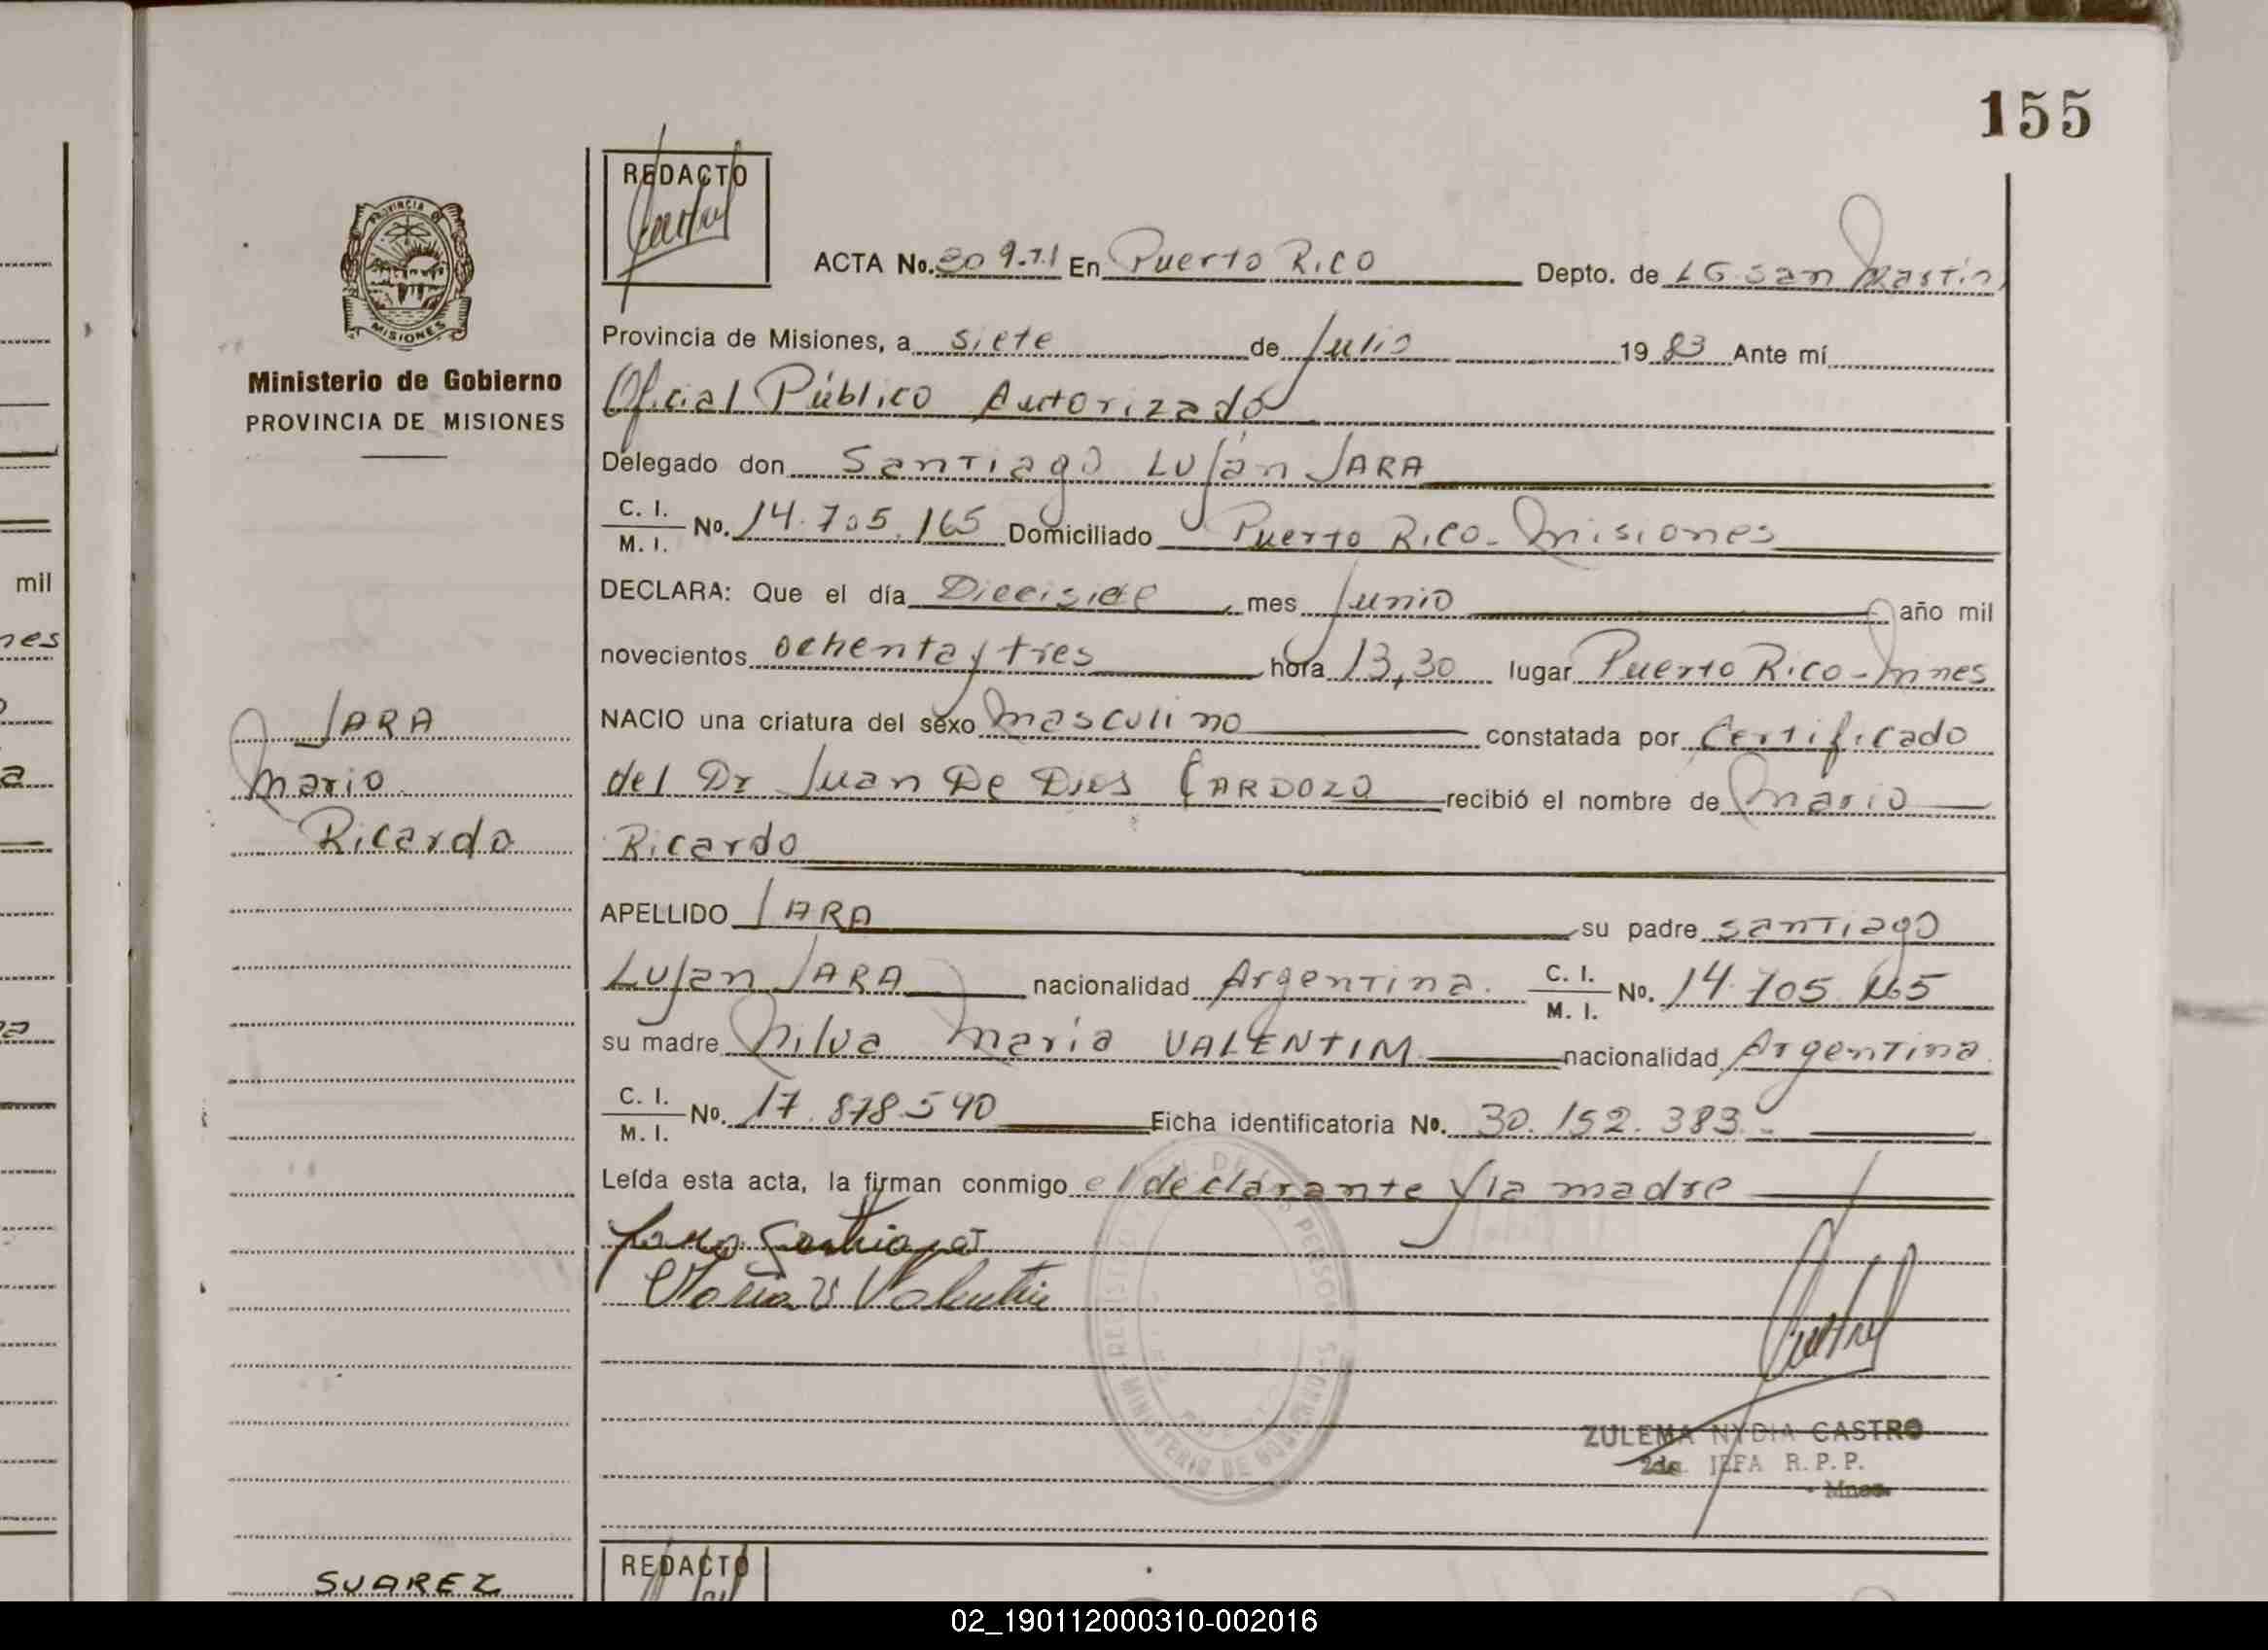 155
REDACTO
PROVINCIA DE
MISIONES
Ministerio de Gobierno
PROVINCIA DE MISIONES
ACTA No. 309.T.I En Puerto Rico Depto. de LG San Martin
Provincia de Misiones, a siete de Julio 1983 Ante mí
Oficial Público Autorizado
Delegado don Santiago Luján JARA
C. I. / M. I. No. 14.705.165 Domiciliado Puerto Rico - Misiones
DECLARA: Que el día Diecisiete mes Junio año mil
novecientos ochenta y tres hora 13,30 lugar Puerto Rico - Mnes
NACIO una criatura del sexo masculino constatada por Certificado
del Dr Juan De Dios CARDOZO recibió el nombre de Mario
Ricardo
APELLIDO JARA su padre Santiago
Lujan JARA nacionalidad Argentina. C. I. / M. I. No. 14.705.165
su madre Nilva María VALENTIM nacionalidad Argentina
C. I. / M. I. No. 17.878.590 Ficha identificatoria No. 30.152.383.-
Leída esta acta, la firman conmigo el declarante y la madre
JARA
Mario
Ricardo
Jara Santiago
Maria V Valentin
MINISTERIO DE GOBIERNO
ZULEMA NYDIA CASTRO
2da. JEFA R. P. P.
Mnes.
SUAREZ
REDACTO
mil
nes
a
02_190112000310-002016